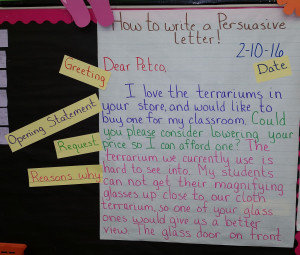 How to write a Persuasive
Letter!
2-10-16
Greeting
Date
Dear Petco,
I love the terrariums in
your store, and would like to
buy one for my classroom. Could
Opening Statement
you please consider lowering your
Request
price so I can afford one? The
terrarium we currently use is
Reasons why
hard to see into. My students
can not get their magnifying
glasses up close to our cloth
terrarium, so one of your glass
ones would give us a better
view. The glass door on front